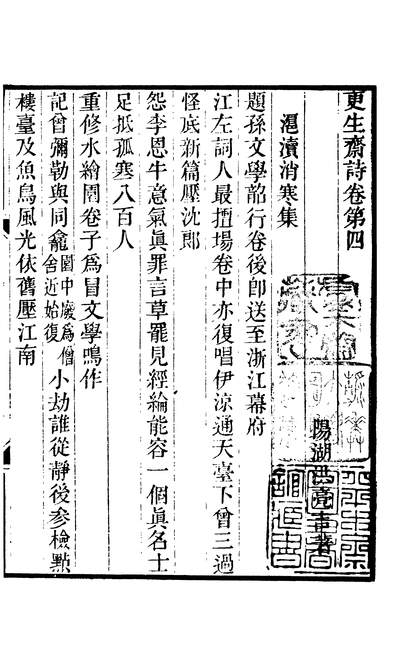 更生齋詩卷第四
陽湖洪亮吉著
滬瀆消寒集
題孫文學韶行卷後卽送至浙江幕府
江左詞人最擅場卷中亦復唱伊涼通天臺下曾三過
怪底新篇壓沈郎
怨李恩牛意氣眞罪言草罷見經綸能容一個眞名士
足抵孤寒八百人
重修水繪園卷子爲冒文學鳴作
記曾彌勒與同龕園中廢爲僧舍近始復小劫誰從靜後參檢點
樓臺及魚鳥風光依舊壓江南